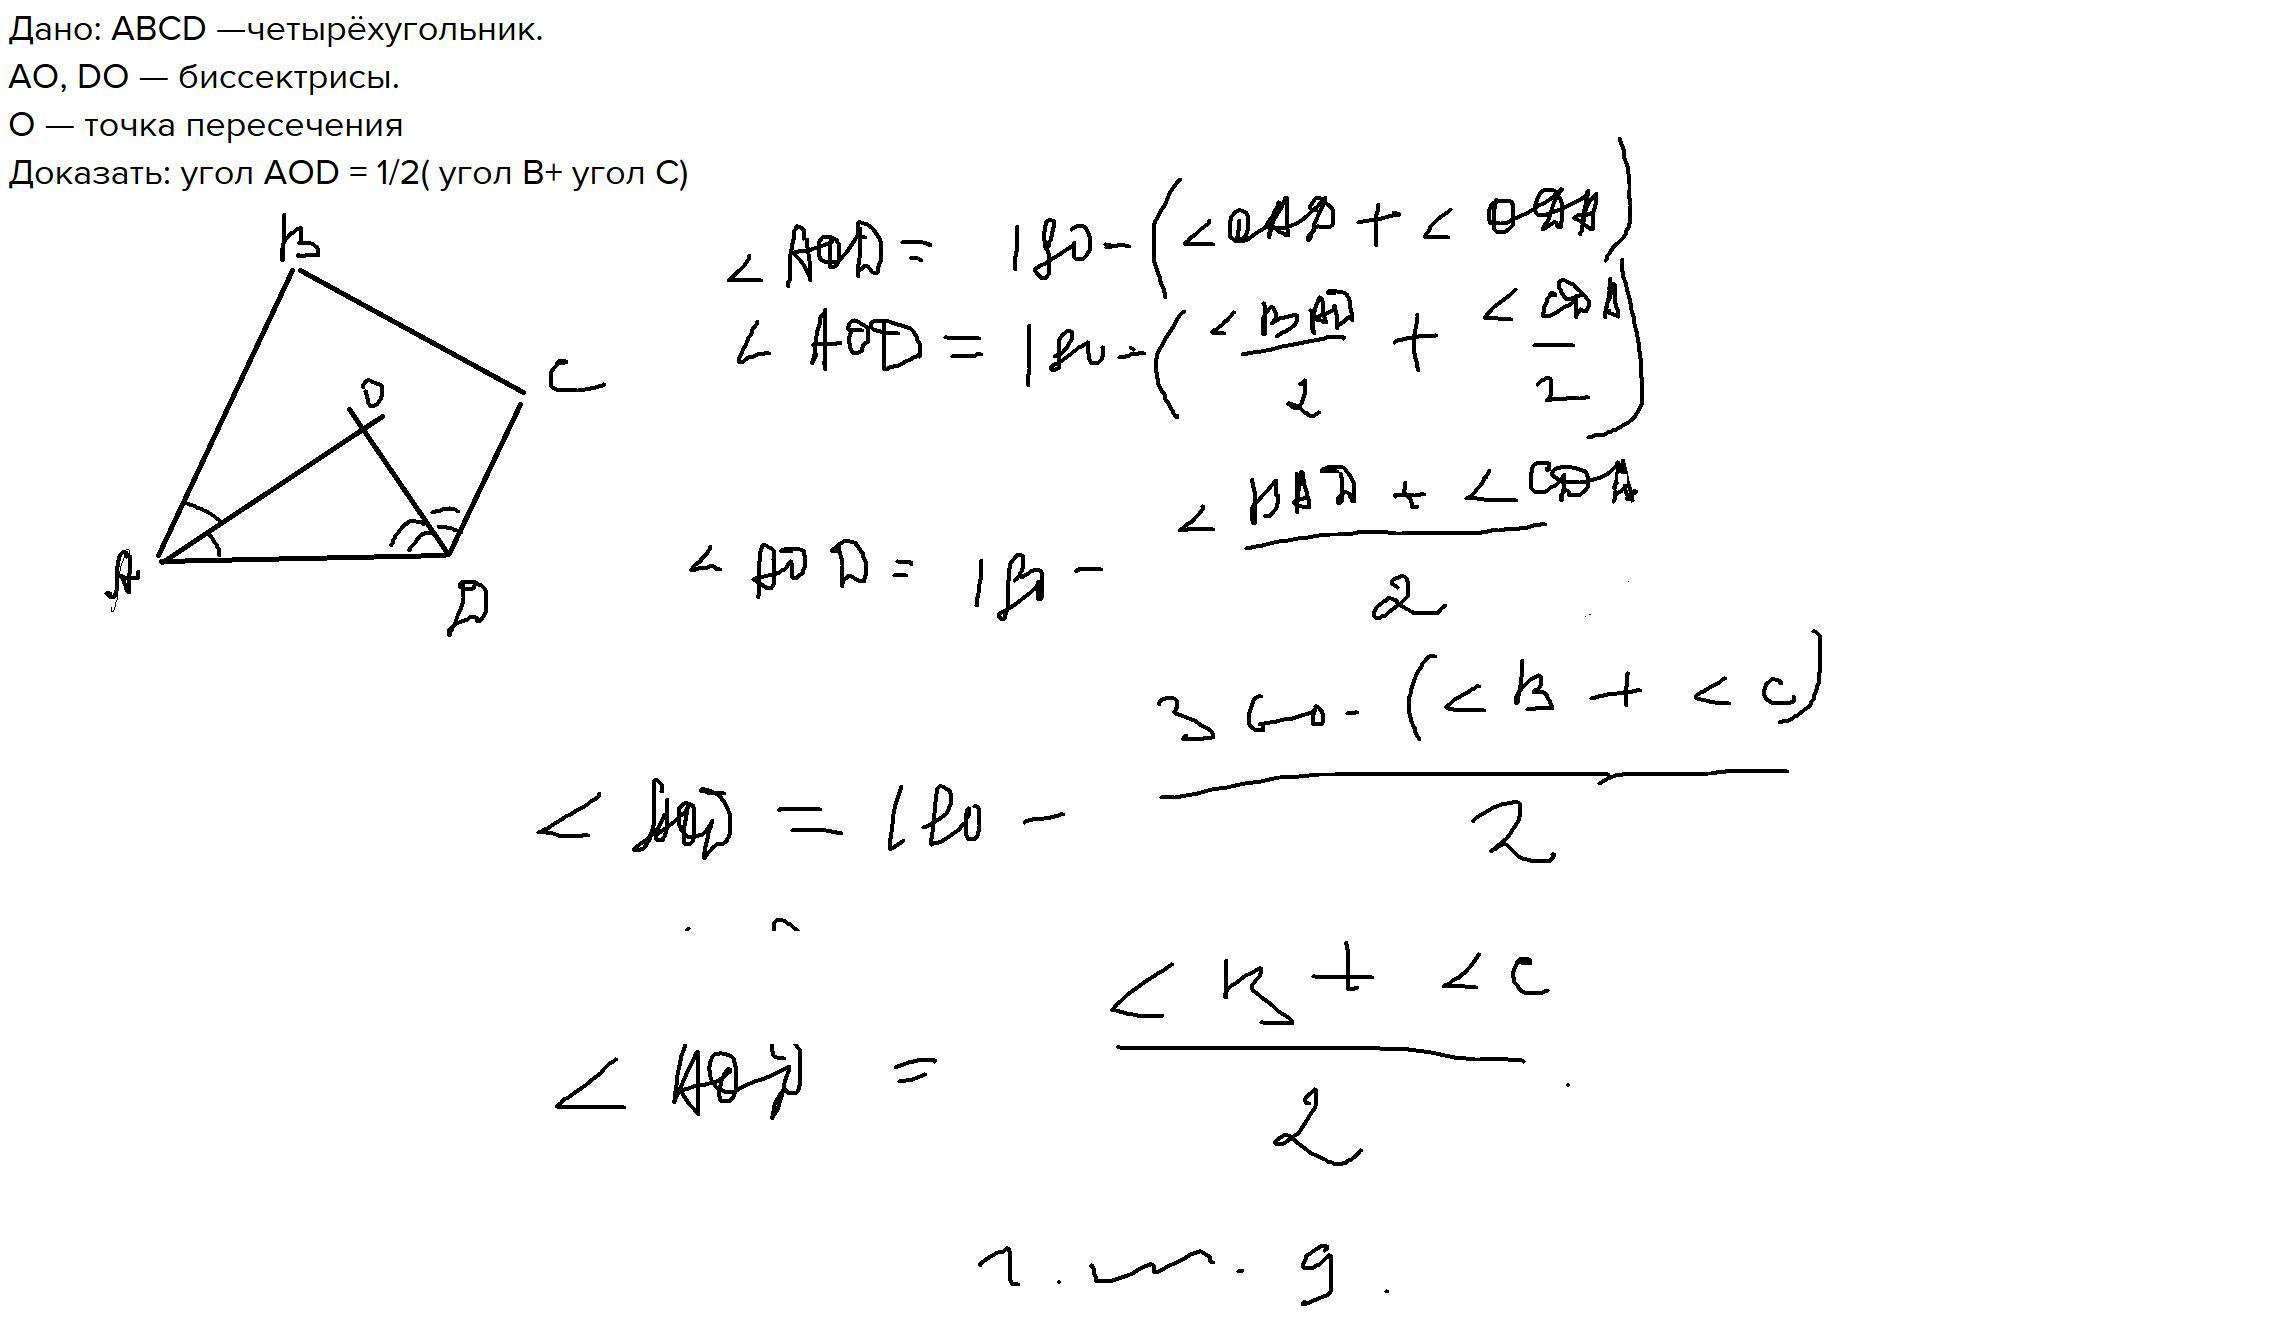 Дано: ABCD —четырёхугольник.
AO, DO — биссектрисы.
O — точка пересечения
Доказать: угол AOD = 1/2( угол B+ угол C)
B
C
O
A
D
< AOD = 180 - (< OAD + < ODA)
< AOD = 180 - (< BAD / 2 + < CDA / 2)
< AOD = 180 - < BAD + < CDA / 2
< AOD = 180 - 360 - (< B + < C) / 2
< AOD = < B + < C / 2
ч.т.д.